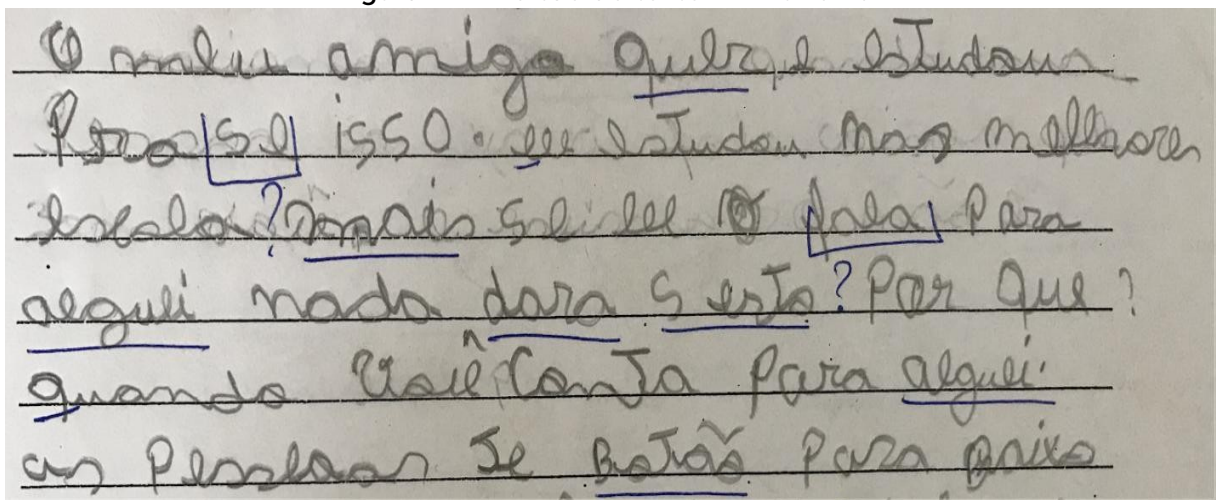 O meu amigo quer e estudou
Para se isso. ele estudou nas melhores
escola? mais se ele fala para
alguei nada dara sesto? Por que?
quando você conta para alguei
as pessoas te botão para baixo